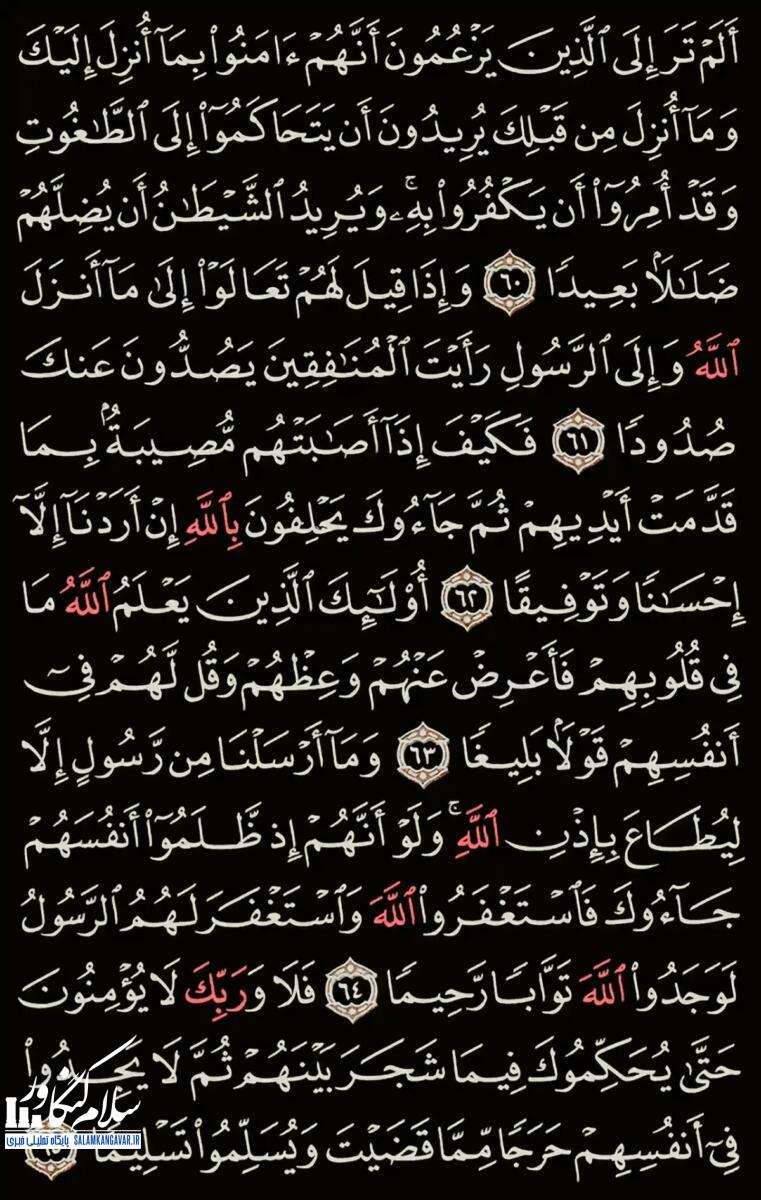 أَلَمْ تَرَ إِلَى ٱلَّذِينَ يَزْعُمُونَ أَنَّهُمْ ءَامَنُوا۟ بِمَآ أُنزِلَ إِلَيْكَ
وَمَآ أُنزِلَ مِن قَبْلِكَ يُرِيدُونَ أَن يَتَحَاكَمُوٓا۟ إِلَى ٱلطَّٰغُوتِ
وَقَدْ أُمِرُوٓا۟ أَن يَكْفُرُوا۟ بِهِۦۚ وَيُرِيدُ ٱلشَّيْطَٰنُ أَن يُضِلَّهُمْ
ضَلَٰلًۢا بَعِيدًا ٦٠ وَإِذَا قِيلَ لَهُمْ تَعَالَوْا۟ إِلَىٰ مَآ أَنزَلَ
ٱللَّهُ وَإِلَى ٱلرَّسُولِ رَأَيْتَ ٱلْمُنَٰفِقِينَ يَصُدُّونَ عَنكَ
صُدُودًا ٦١ فَكَيْفَ إِذَآ أَصَٰبَتْهُم مُّصِيبَةٌۢ بِمَا
قَدَّمَتْ أَيْدِيهِمْ ثُمَّ جَآءُوكَ يَحْلِفُونَ بِٱللَّهِ إِنْ أَرَدْنَآ إِلَّآ
إِحْسَٰنًا وَتَوْفِيقًا ٦٢ أُو۟لَٰٓئِكَ ٱلَّذِينَ يَعْلَمُ ٱللَّهُ مَا
فِى قُلُوبِهِمْ فَأَعْرِضْ عَنْهُمْ وَعِظْهُمْ وَقُل لَّهُمْ فِىٓ
أَنفُسِهِمْ قَوْلًۢا بَلِيغًا ٦٣ وَمَآ أَرْسَلْنَا مِن رَّسُولٍ إِلَّا
لِيُطَاعَ بِإِذْنِ ٱللَّهِۚ وَلَوْ أَنَّهُمْ إِذ ظَّلَمُوٓا۟ أَنفُسَهُمْ
جَآءُوكَ فَٱسْتَغْفَرُوا۟ ٱللَّهَ وَٱسْتَغْفَرَ لَهُمُ ٱلرَّسُولُ
لَوَجَدُوا۟ ٱللَّهَ تَوَّابًا رَّحِيمًا ٦٤ فَلَا وَرَبِّكَ لَا يُؤْمِنُونَ
حَتَّىٰ يُحَكِّمُوكَ فِيمَا شَجَرَ بَيْنَهُمْ ثُمَّ لَا يَجِدُوا۟
فِىٓ أَنفُسِهِمْ حَرَجًا مِّمَّا قَضَيْتَ وَيُسَلِّمُوا۟ تَسْلِيمًا ٦٥
سلام کنگاور
SALAMKANGAVAR.IR پایگاه تحلیلی خبری